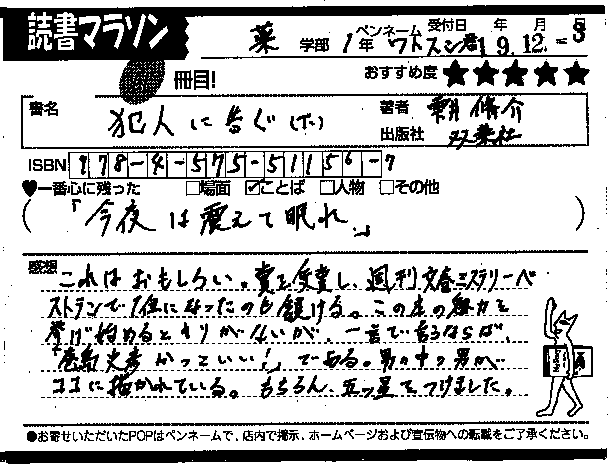 読書マラソン
薬 学部 1年 ペンネーム ワトスン君 受付日 19年12月3日
冊目!
おすすめ度 ★★★★★
書名 犯人に告ぐ(下)
著者 雫井脩介
出版社 双葉社
ISBN 978-4-575-51156-7
♥一番心に残った □場面 ☑ことば □人物 □その他
(「今夜は震えて眠れ」)
感想 これはおもしろい。賞を受賞し、週刊文春ミステリーベ
ストテンで1位になったのも頷ける。この本の魅力を
挙げ始めるときりがないが、一言で言うならば、
「巻島史彦かっていい!」である。男の中の男が
ココに描かれている。もちろん、五ッ星をつけました。
●お寄せいただいたPOPはペンネームで、店内で掲示、ホームページおよび宣伝物への転載をご了承ください。